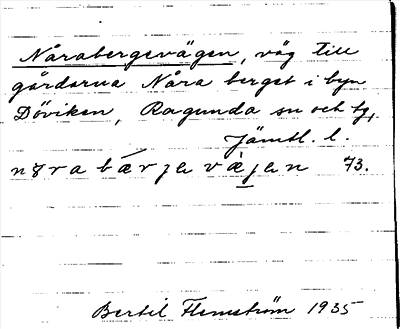 Nårabergsvägen, väg till
gårdarna Nåra berget i byn
Döviken, Ragunda sn och tg,
Jämtl. l.
73.
Bertil Flemström 1935